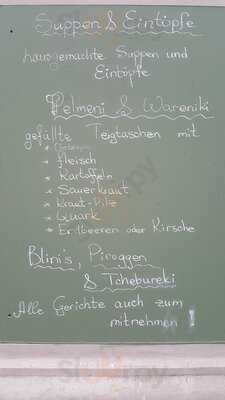 Suppen & Eintöpfe
hausgemachte Suppen und
Eintöpfe
Pelmeni & Wareniki
gefüllte Teigtaschen mit
* fleisch
* Kartoffeln
* Sauerkraut
* Kraut-Pilz
* Quark
* Erdbeeren oder Kirsche
Blini's, Piroggen
& Tchebureki
Alle Gerichte auch zum
mitnehmen !